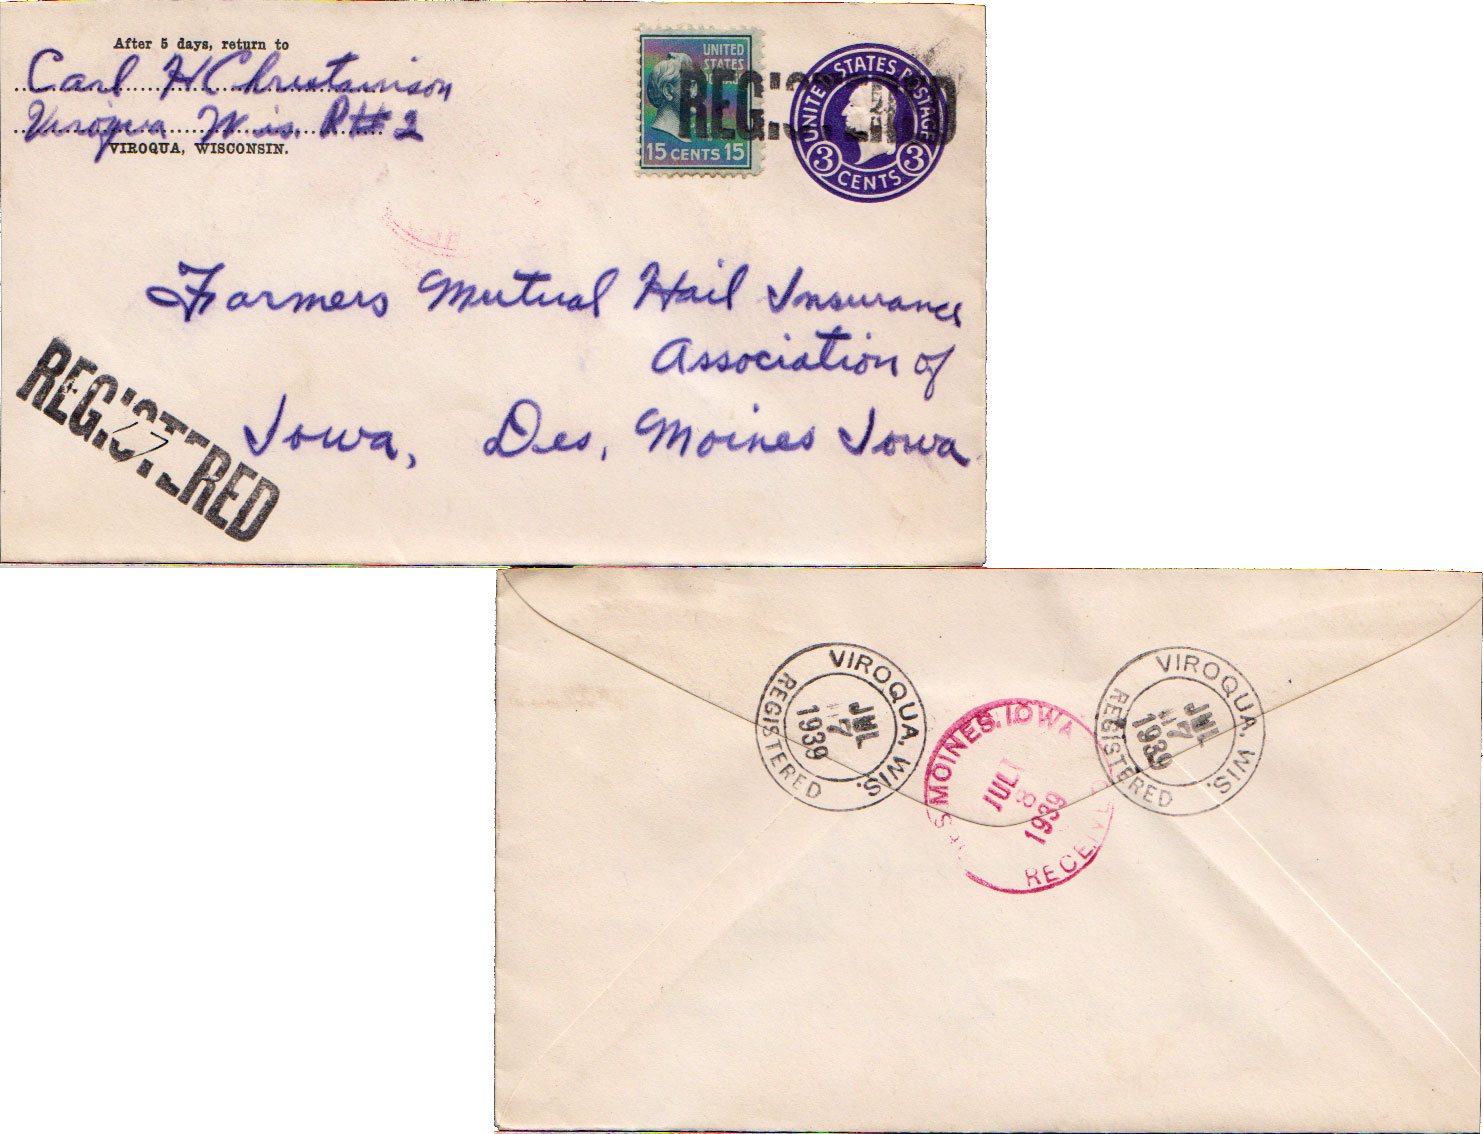 After 5 days, return to
Carl H Christianson
Viroqua Wis. R#2
VIROQUA, WISCONSIN.
UNITED
STATES
15 CENTS 15
REGISTERED
UNITED STATES POSTAGE
3 CENTS 3
Farmers Mutual Hail Insurance
Association of
Iowa, Des, Moines Iowa
REGISTERED
VIROQUA, WIS.
JUL
7
1939
REGISTERED
MOINES, IOWA
JUL
8
1939
RECEIVED
VIROQUA, WIS.
JUL
7
1939
REGISTERED